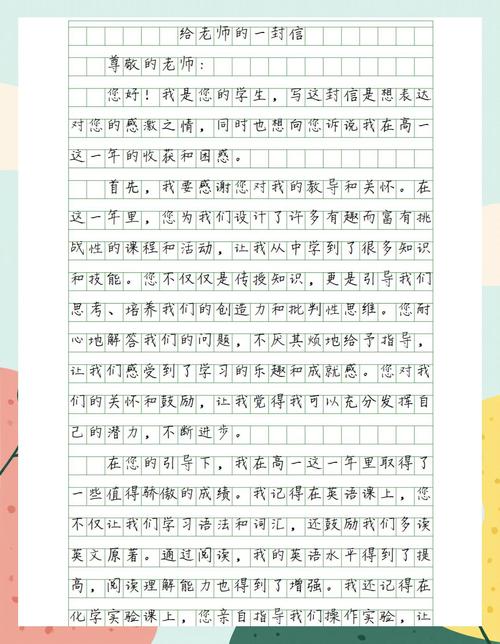 给老师的一封信
尊敬的老师：
您好！我是您的学生，写这封信是想表达
对您的感激之情，同时也想向您诉说我在高一
这一年的收获和困惑。
首先，我要感谢您对我的教导和关怀。在
这一年里，您为我们设计了许多有趣而富有挑
战性的课程和活动，让我从中学到了很多知识
和技能。您不仅仅是传授知识，更是引导我们
思考、培养我们的创造力和批判性思维。您耐
心地解答我们的问题，不厌其烦地给予指导，
让我们感受到了学习的乐趣和成就感。您对我
们的关怀和鼓励，让我觉得我可以充分发挥自
己的潜力，不断进步。
在您的引导下，我在高一这一年里取得了
一些值得骄傲的成绩。我记得在英语课上，您
不仅让我们学习语法和词汇，还鼓励我们多读
英文原著。通过阅读，我的英语水平得到了提
高，阅读理解能力也得到了增强。我还记得在
化学实验课上，您亲自指导我们操作实验，让